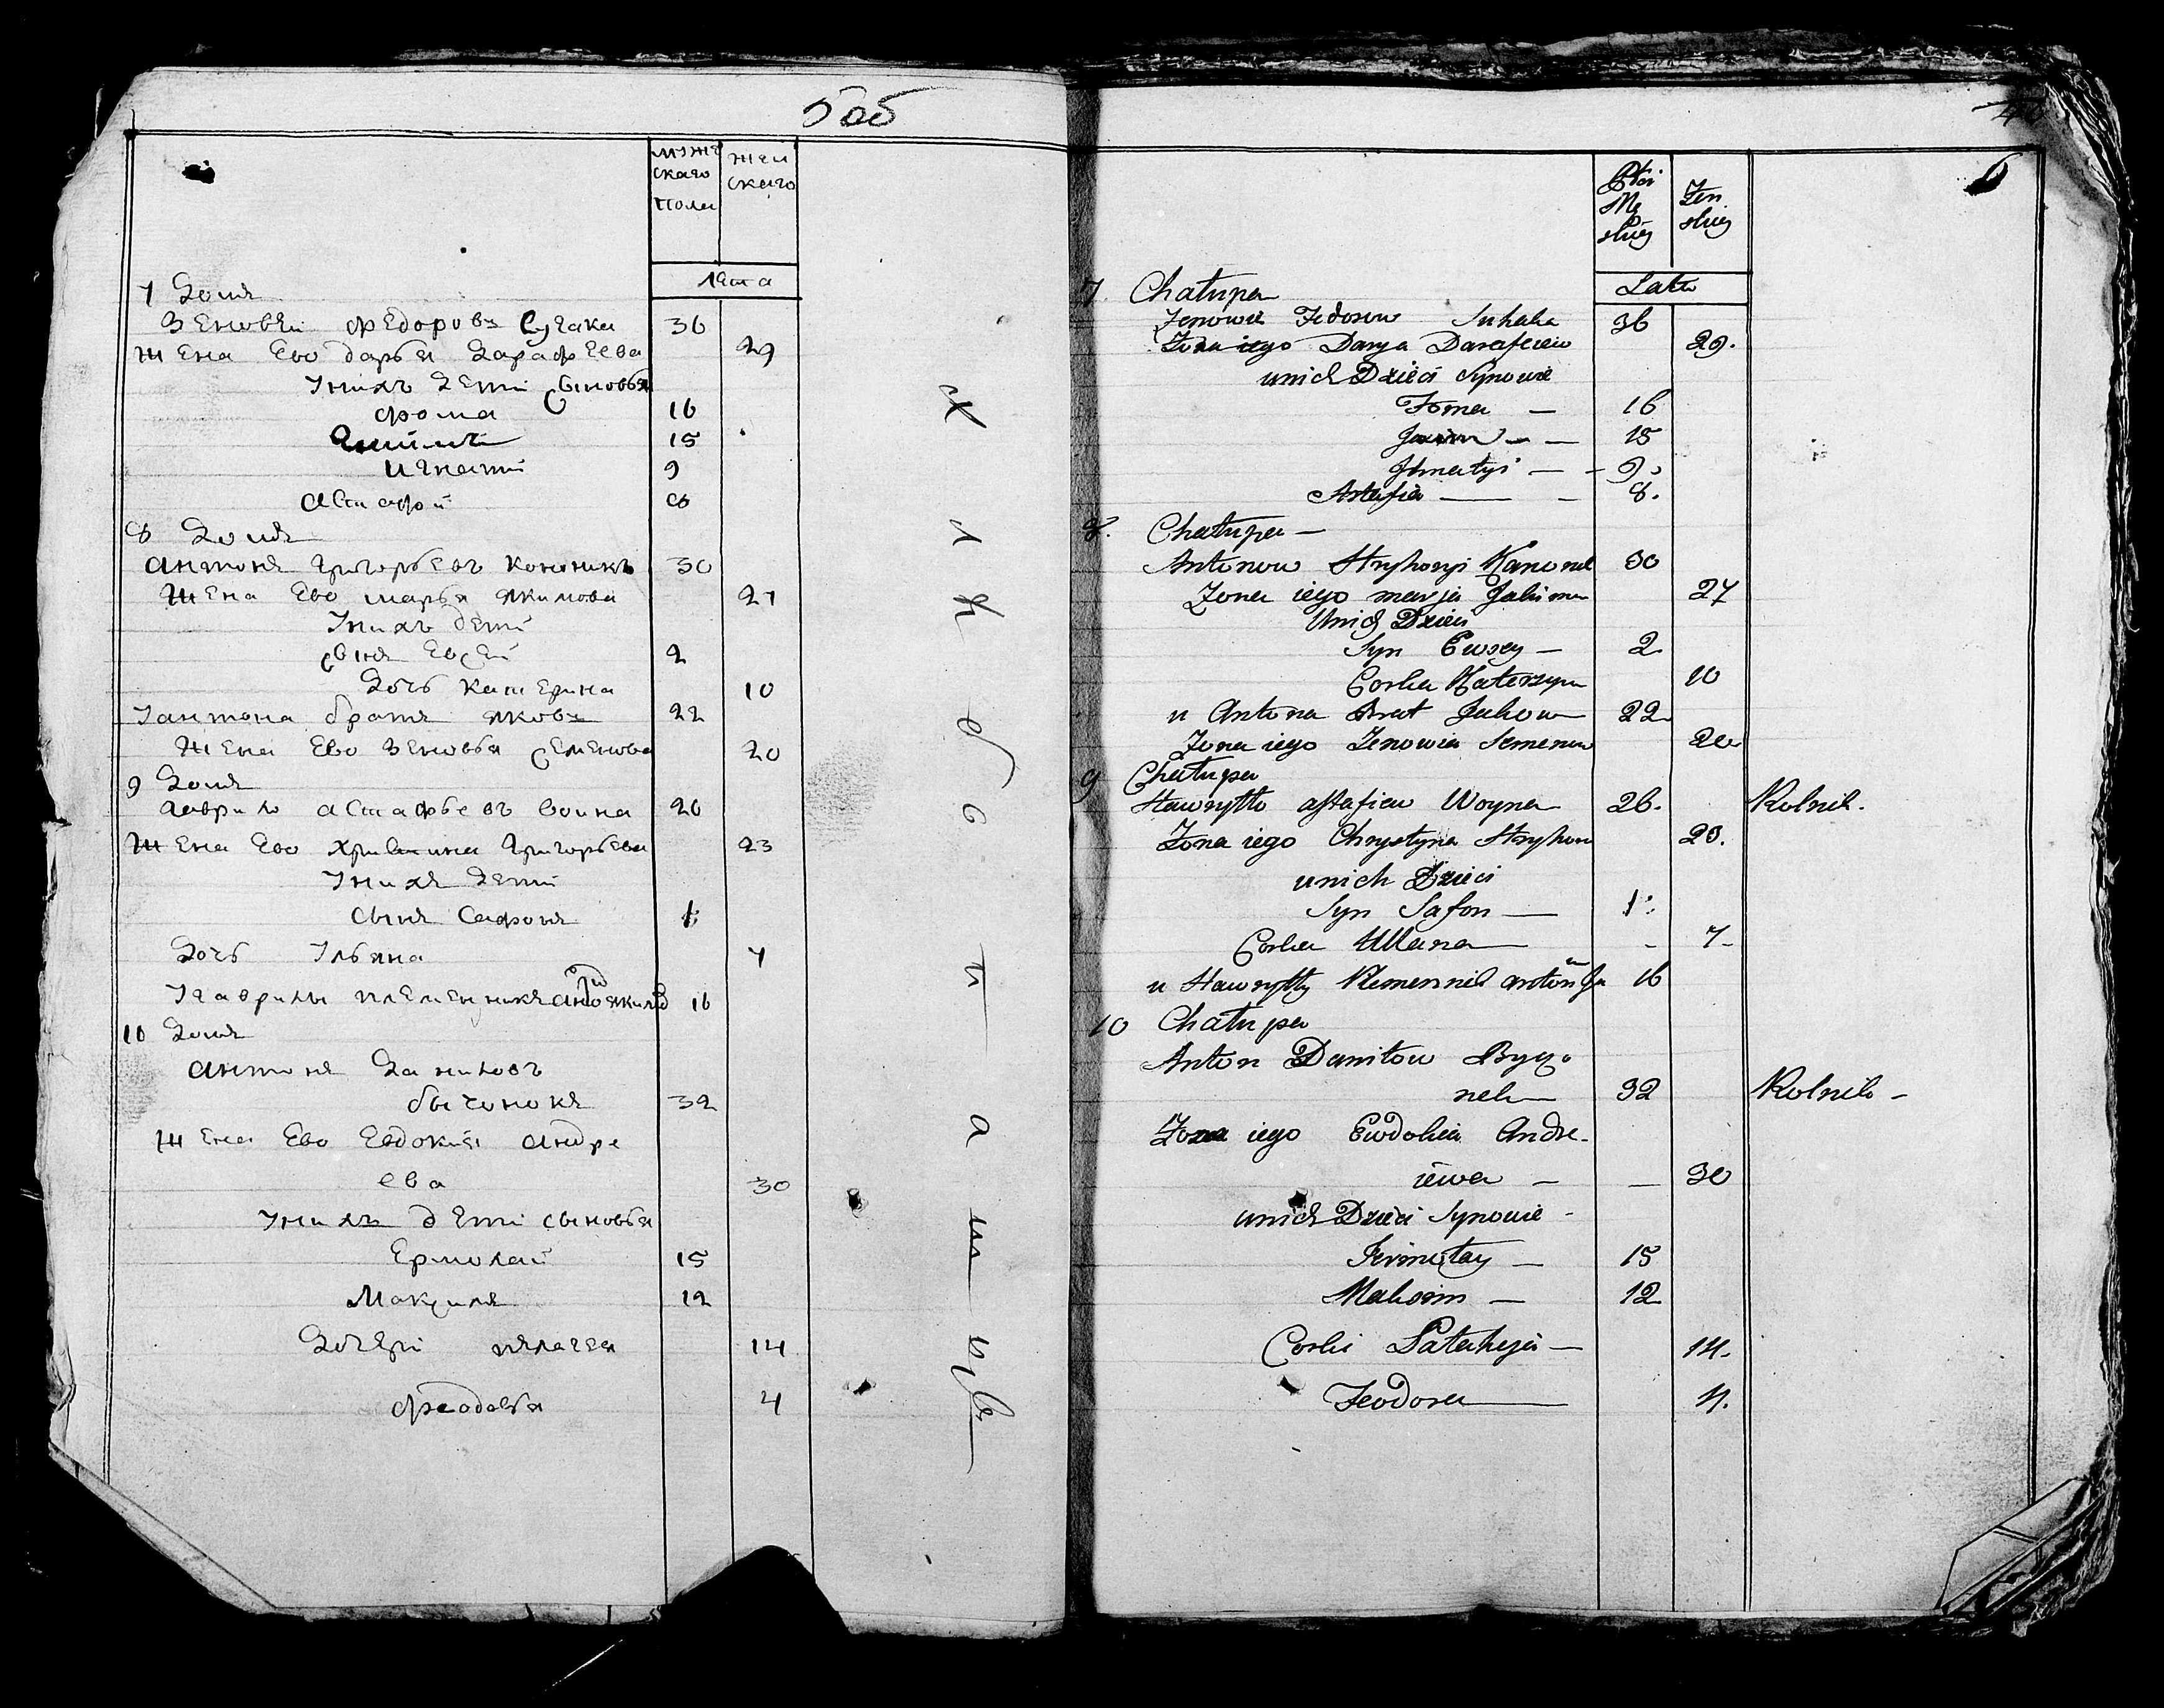 5об
мужескаго пола
женскаго
лета
7 Домъ
Зеновей Федоровъ Сугака 36
жена Ево дарья Дарафеева 29
Унихъ Дети сыновья
фома 16
15
игнати 9
астафи 8
8 Домъ
антонъ григорьевъ кононикъ 30
жена Ево марья якимова 27
Унихъ дети
сынъ Евсей 2
Дочь катерина 10
Уантона братъ яковъ 22
жена Ево Зеновья семенова 20
9 Домъ
гаврило астафьевъ воина 26
жена Ево христина григорьева 23
Унихъ Дети
сынъ сафонъ 1
Дочь Ульяна 7
Угаврилы племенникъ 16
10 Домъ
антонъ Даниловъ
бычонокъ 32
жена Ево Евдокия андре
ева 30
Унихъ дети сыновья
Ермолай 15
Максимъ 12
Дочери пелагея 14
феодосья 4
хлебопашцы
6
Płci Męskiej
Żeńskiej
Lata
7. Chałupa
Zenowie Fedorow Suhaka 36
Żona iego Darya Darafeiew 29.
unich Dzieci Synowie
Foma — 16
Jaxim — — 15
Ihnatyi — - 9.
Astafia — - 8.
8. Chałupa —
Antonow Hryhoryi Kanonik 30
Żona iego marja Jakimow 27
Unich Dzieci
Syn Ewsey — 2
Corka Katerzyna 10
u Antona Brat Jakow 22
Żona iego Zenowia Semenow 20
9 Chałupa
Hawryłło astafiew Woyna 26. Rolnik.
Żona iego Chrystyna Hryhorw 23.
unich Dzieci
Syn Safon — 1.
Corka Ullana — - 7-
u Hawryłły Plemennik anton Ja 16
10 Chałupa
Anton Daniłow Byczo
nek 32 Rolnik -
Żona iego Ewdokia Andre-
iewa — — 30
unich Dzieci Synowie -
Jermołay — 15
Maksim — 12
Corki Palaheja — 14.
Feodora — 4.